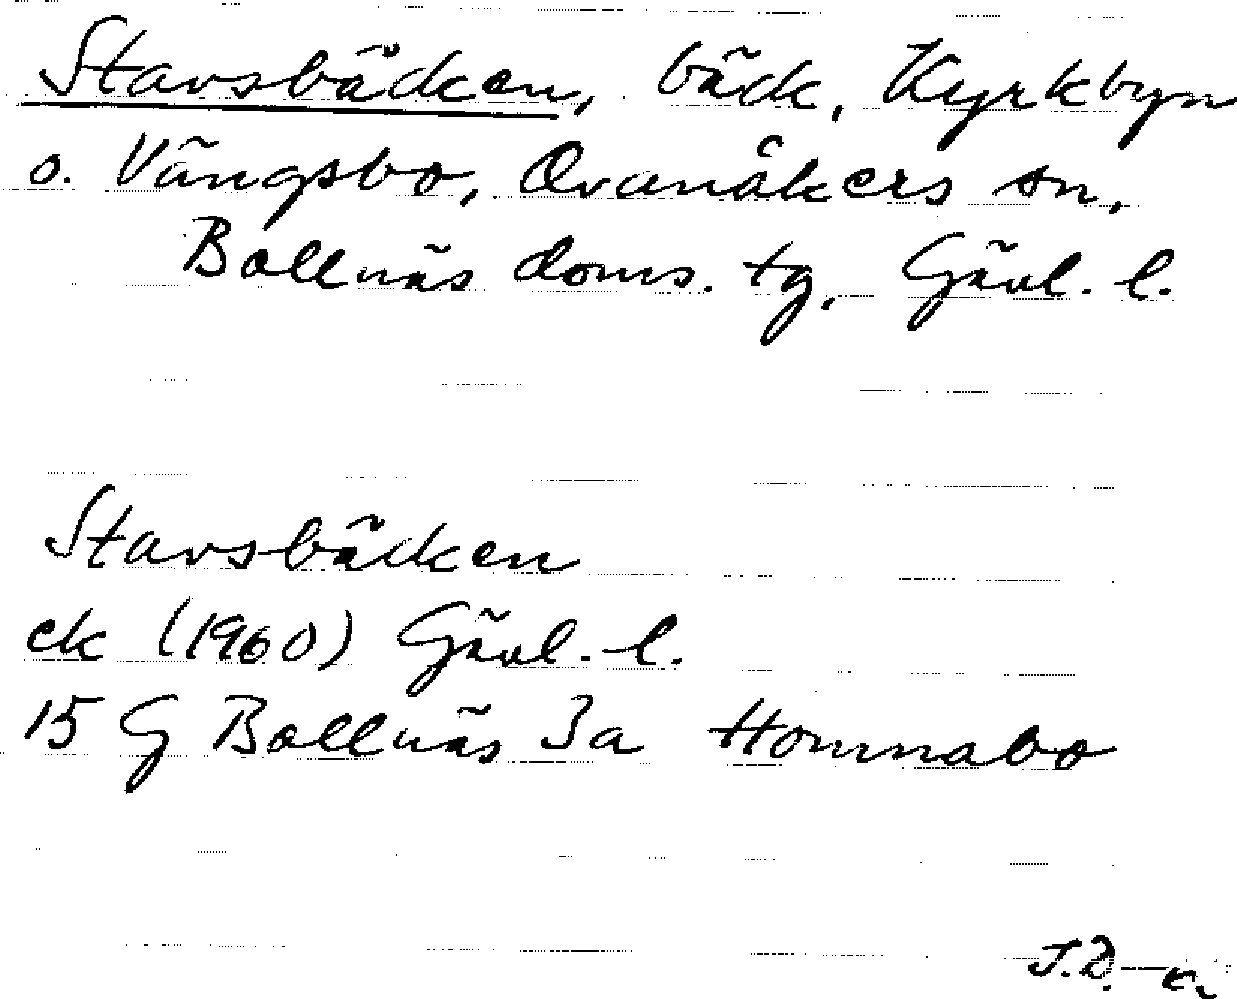 Stavsbäcken, bäck, Kyrkbyn
o. Vängsbo, Ovanåkers sn,
Bollnäs doms. tg, Gävl. l.
Stavsbäcken
ek (1960) Gävl. l.
15 G Bollnäs 3a Homnabo
J.D.